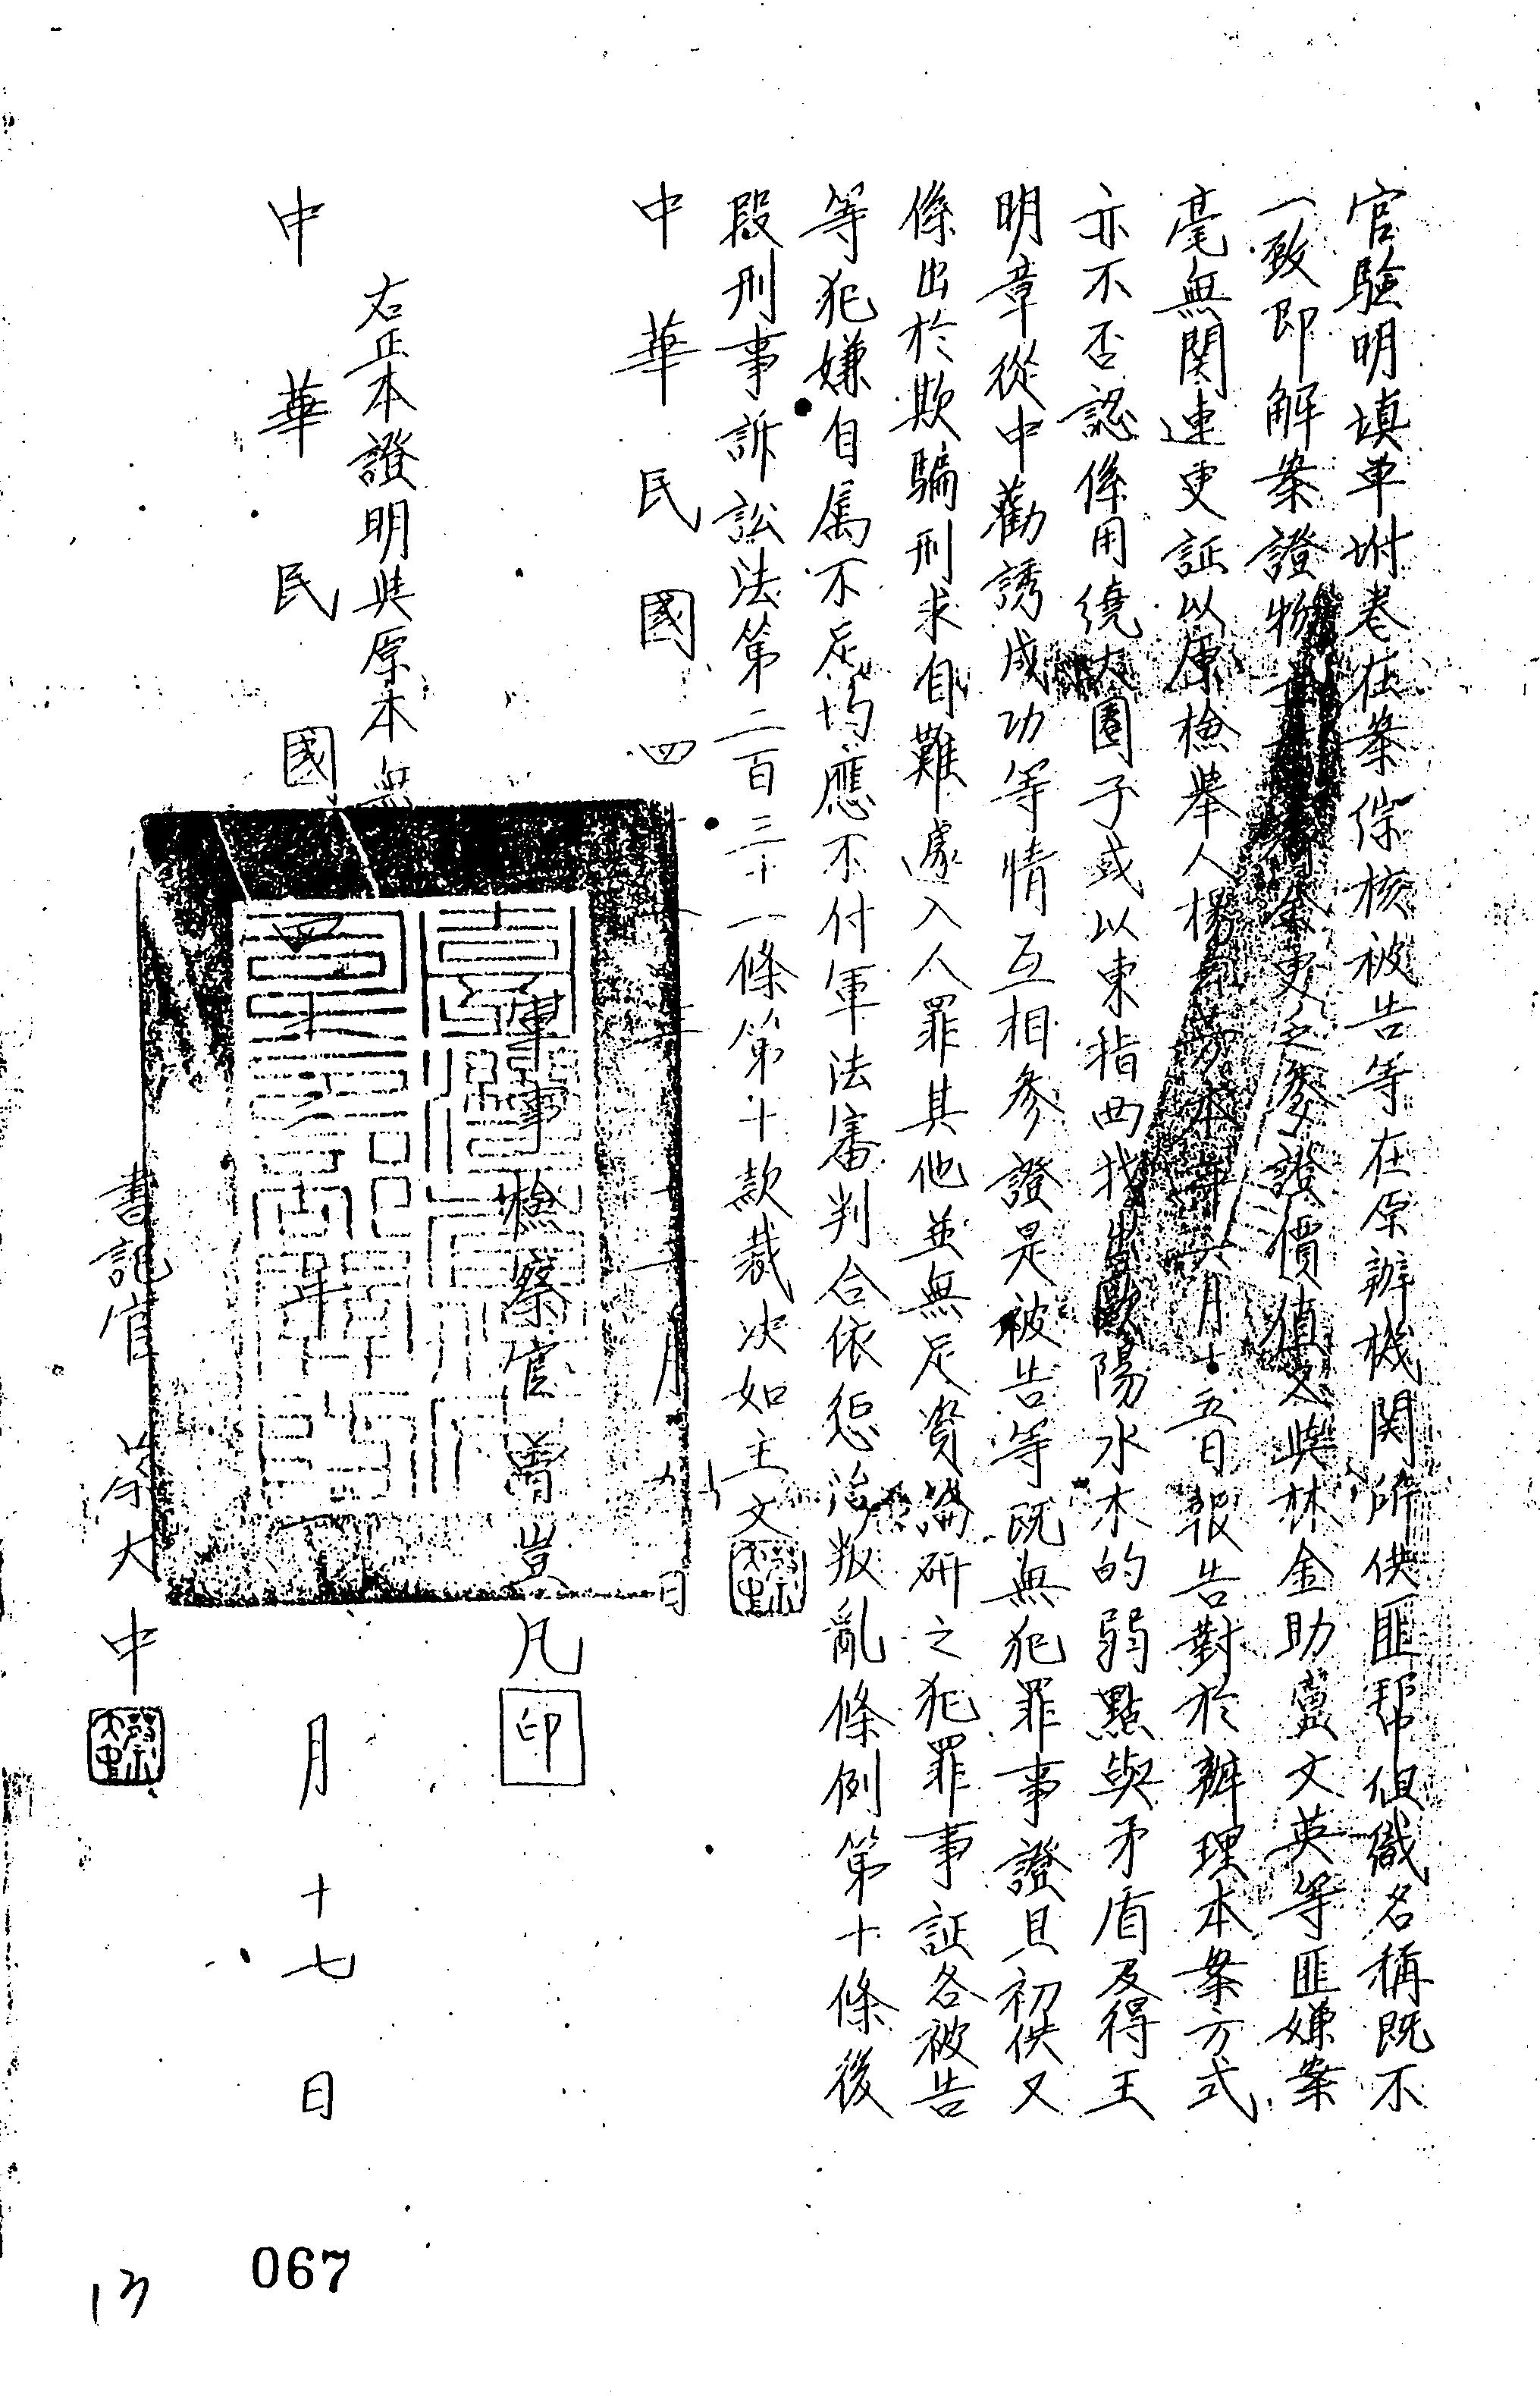 官驗明填单坿卷在案综核被告等在原辦機関所供匪帮组織名稱既不
一致即解案證物 之參證價值又與林金助盧文英等匪嫌案
毫無関連更証以原檢舉人楊 本年六月十五日報告對於辦理本案方式
亦不否認係用繞大圈子或以東指西找出歐陽水木的弱點與矛盾及得王
明章從中勸誘成功等情互相參證是被告等既無犯罪事證且初供又
係出於欺騙刑求自難遽入人罪其他並無足資論研之犯罪事証各被告
等犯嫌自属不足均應不付軍法審判合依惩治叛亂條例第十條後
段刑事訴訟法第二百三十一條第十款裁決如主文
中華民國四十年十一月九日
軍事檢察官曹豈凡 印
右正本證明與原本無
中華民國四十 年 月十七日
書記官 蔡大中
067
13